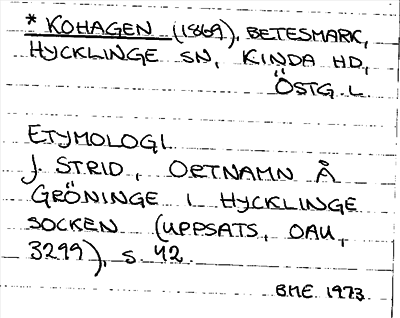 * KOHAGEN (1869), BETESMARK,
HYCKLINGE SN, KINDA HD,
ÖSTG. L.
ETYMOLOGI
J. STRID, ORTNAMN Å
GRÖNINGE I HYCKLINGE
SOCKEN (UPPSATS, OAU,
3299), S. 42.
B.M.E. 1973